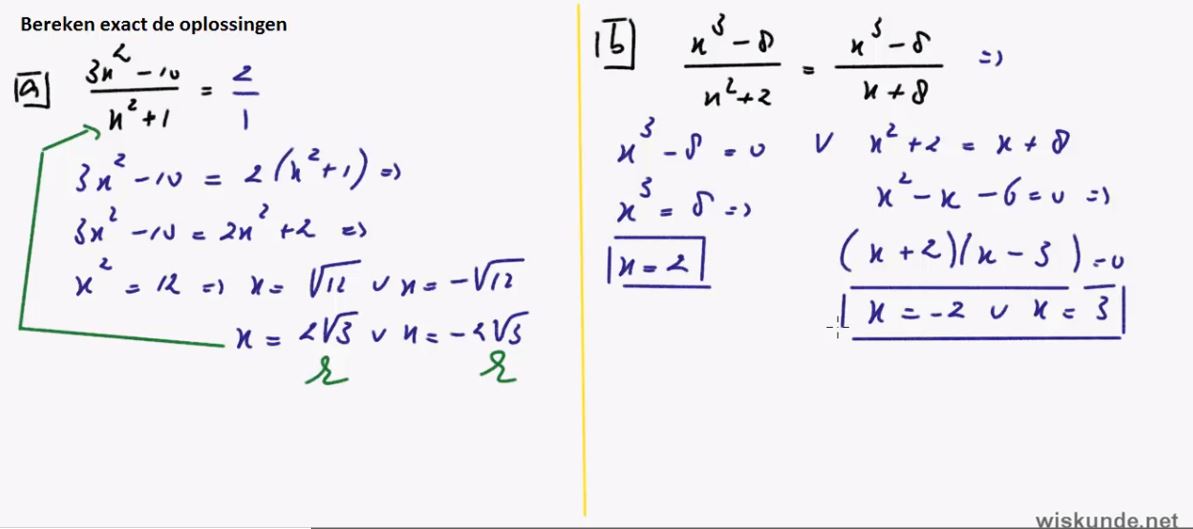 Bereken exact de oplossingen
a) (3x² - 10)/(x² + 1) = 2/1
3x² - 10 = 2(x² + 1) =>
3x² - 10 = 2x² + 2 =>
x² = 12 => x = √12 ∨ x = -√12
x = 2√3 ∨ x = -2√3
b) (x³ - 8)/(x² + 2) = (x³ - 8)/(x + 8) =>
x³ - 8 = 0 ∨ x² + 2 = x + 8
x³ = 8 => x² - x - 6 = 0 =>
x = 2 (x + 2)(x - 3) = 0
x = -2 ∨ x = 3
wiskunde.net